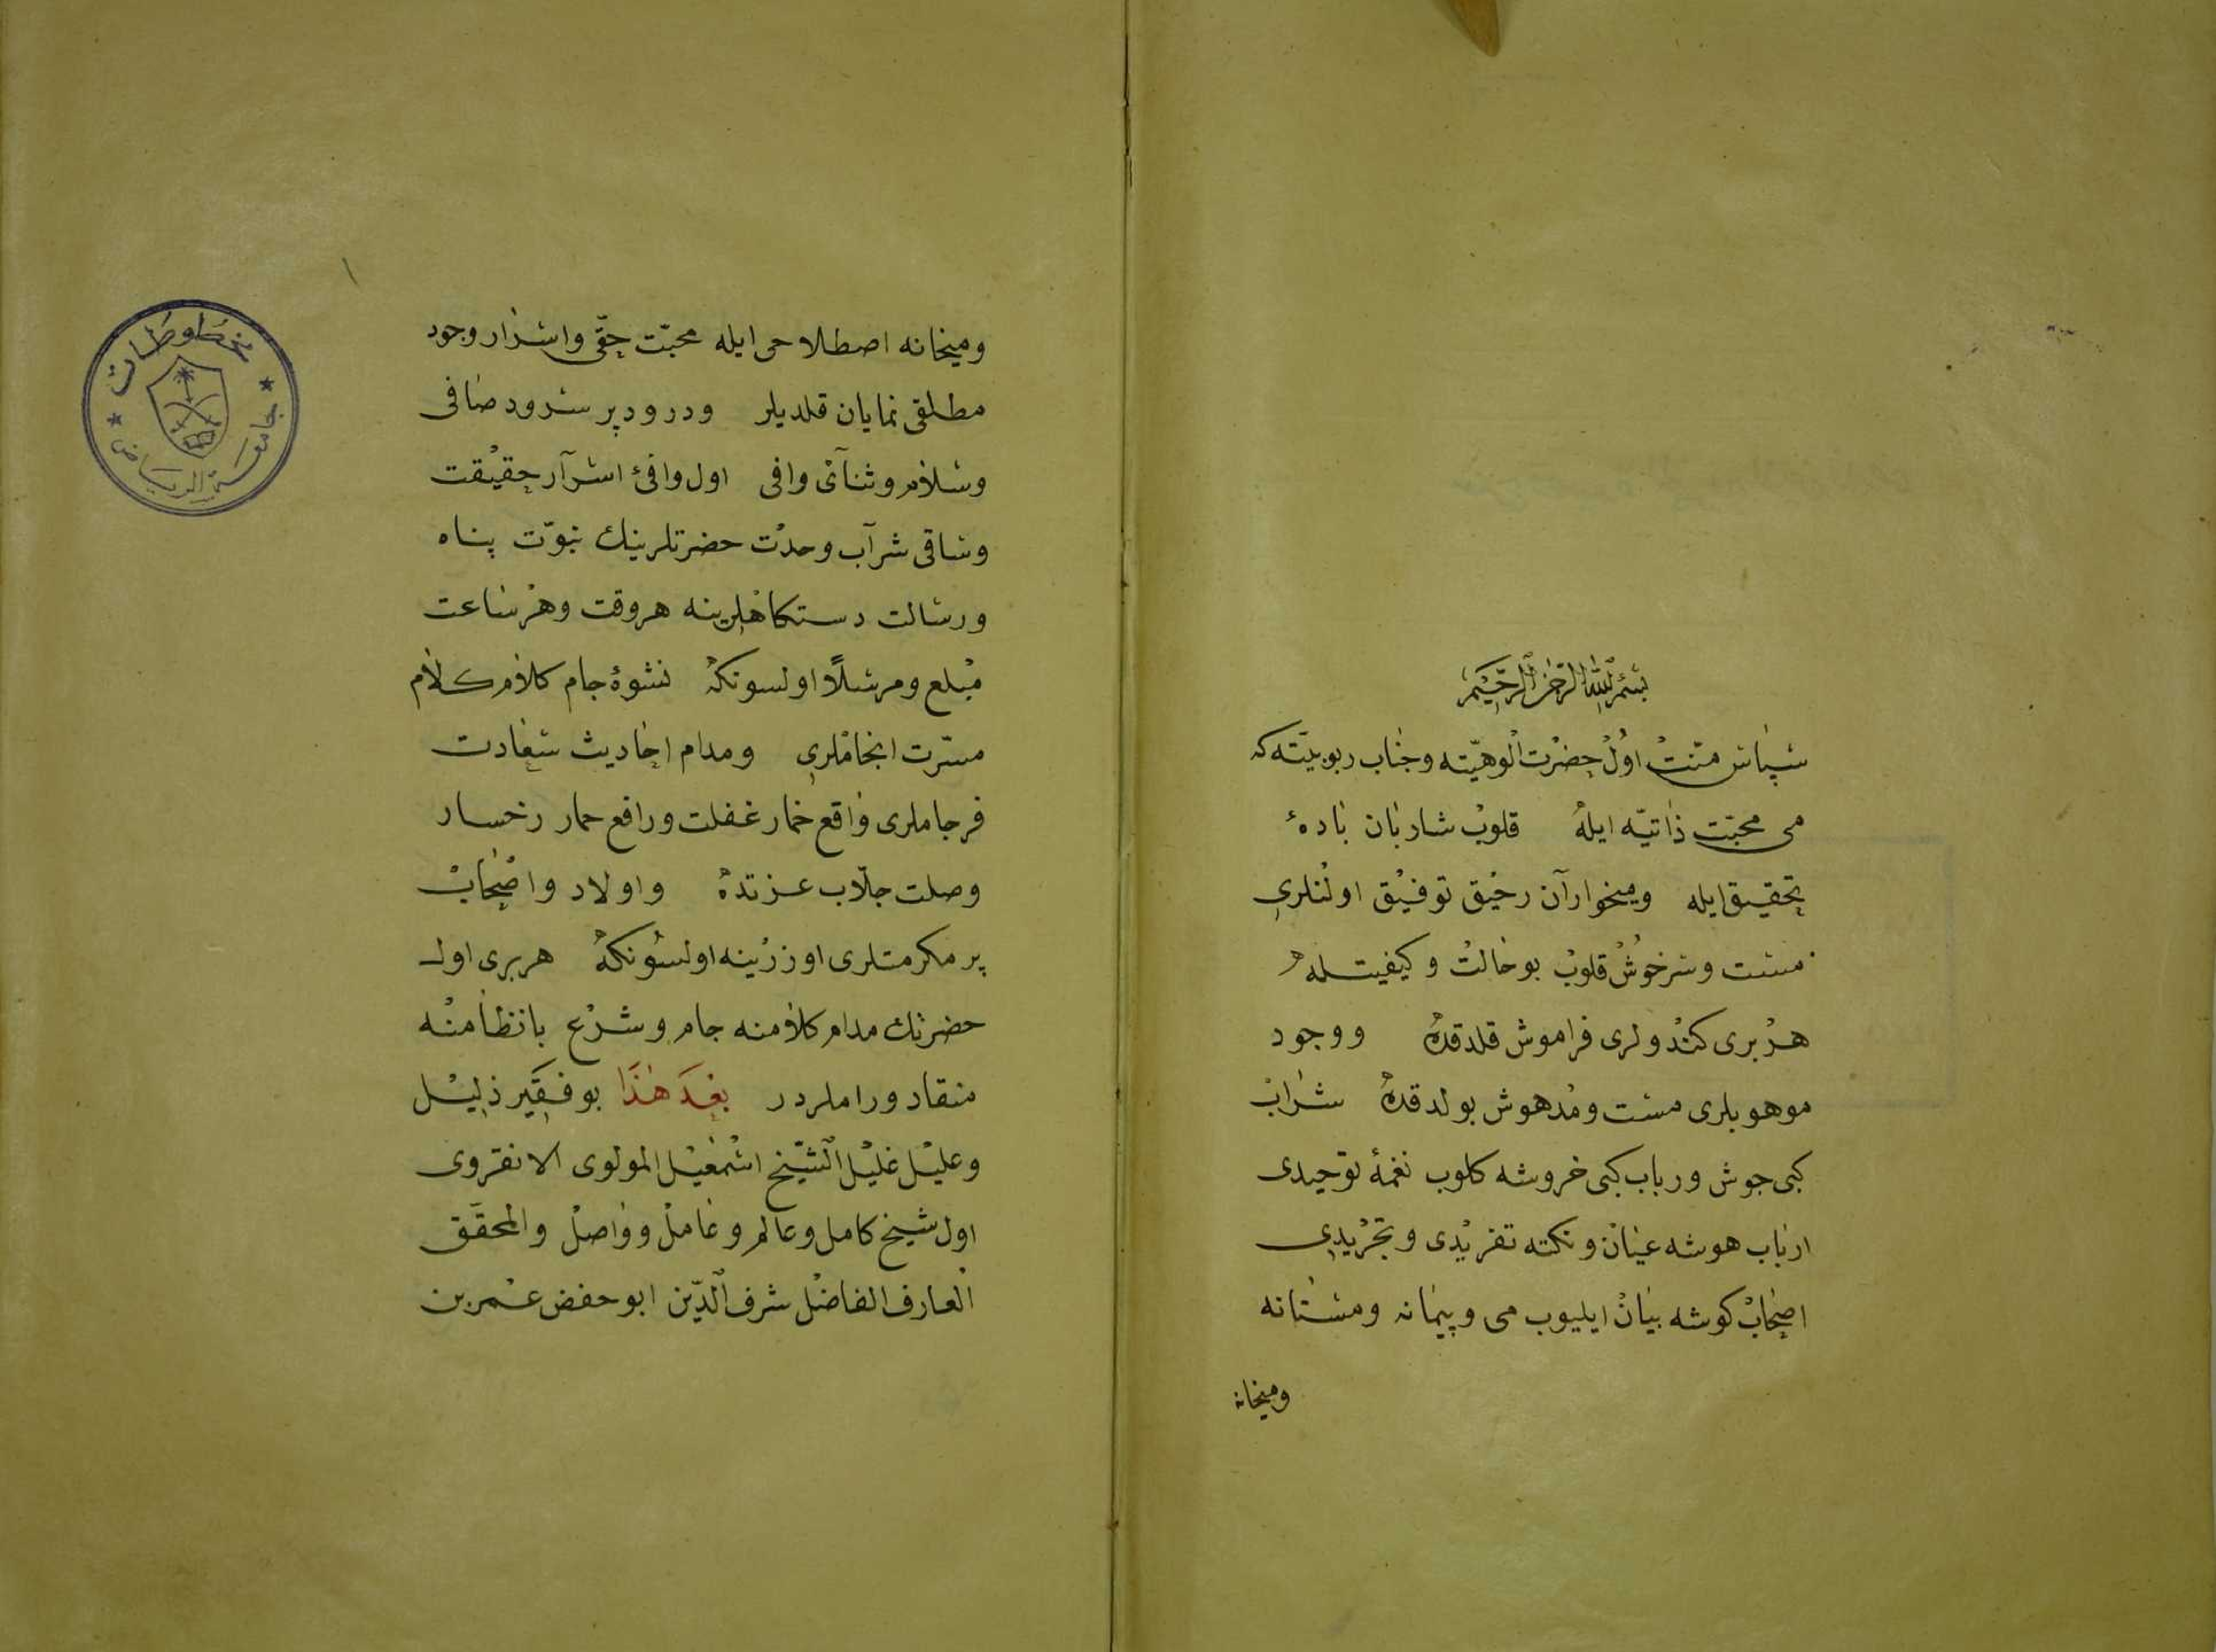 بسم الله الرحمن الرحيم
سپاس منت اول حضرت الوهيته وجناب ربوبيته كه
می محبت ذاتيه ايله قلوب شاربان بادهٔ
تحقيق ايله وميخواران رحيق توفيق اولنلری
مست وسرخوش قلوب بو حالت وكيفيتله
هر بری كندولری فراموش قلدقده ووجود
موهوبلری مست ومدهوش بولدقده شراب
كبی جوش ورباب كبی خروشه كلوب نغمهٔ توحيدی
ارباب هوشه عيان ونكته تفريدی وتجريدی
اصحاب كوشه بيان ايليوب می وپيمانه ومستانه
وميخانه
وميخانه اصطلاحی ايله محبت حقی واسرار وجود
مطلقی نمايان قلديلر ودرود پر سرود صافی
وسلام وثنآی وافی اول وافئ اسرآر حقيقت
وساقی شرآب وحدت حضرتلرينك نبوت پناه
ورسالت دستكاهلرينه هر وقت وهر ساعت
مبلع ومرسلاً اولسونكه نشوهٔ جام كلام كلام
مسرت انجاملری ومدام احاديث سعادت
فرجاملری واقع خمار غفلت ورافع حمار رخسار
وصلت جلاب عزتده واولاد واصحاب
پر مكرمتلری اوزرينه اولسونكه هر بری اول
حضرتك مدام كلامنه جام وشرع بانظامنه
منقاد وراملردر بعد هذا بو فقير ذليل
وعليل غليل الشيخ اسمعيل المولوی الانقروی
اول شيخ كامل وعالم وعامل وواصل والمحقق
العارف الفاضل شرف الدين ابو حفص عمر بن
مخطوطات
جامعة الرياض
١